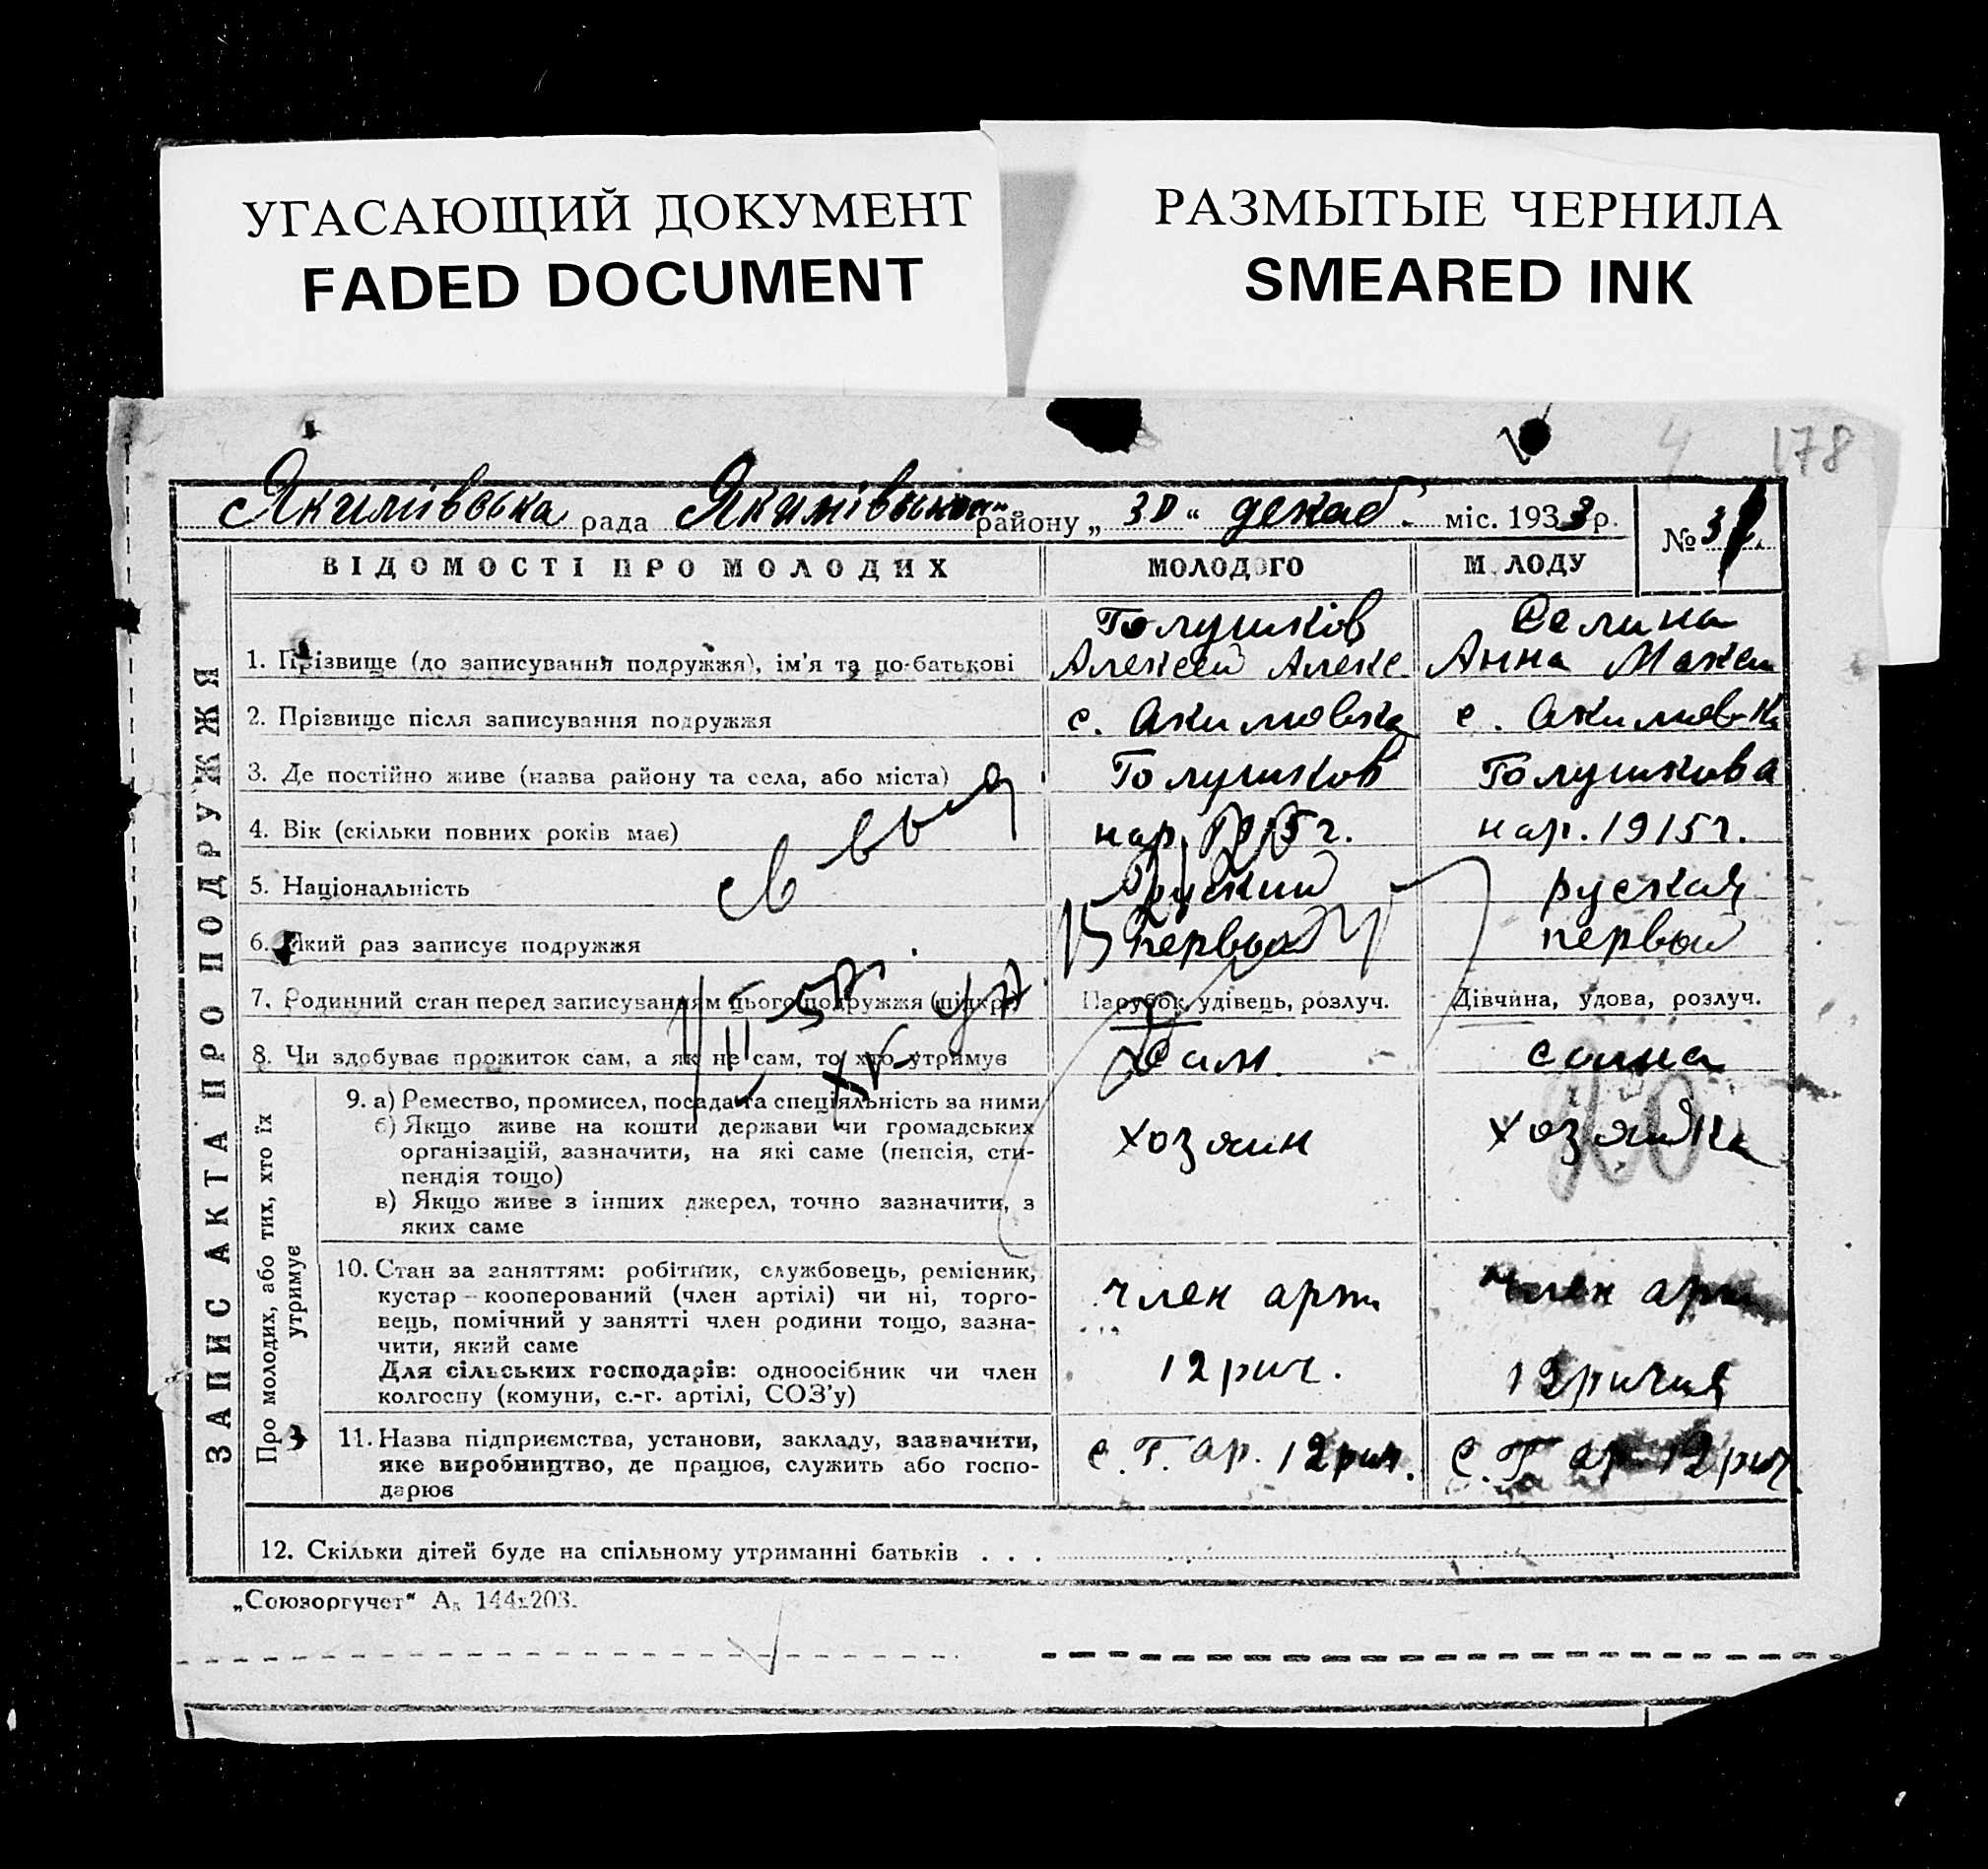 УГАСАЮЩИЙ ДОКУМЕНТ
FADED DOCUMENT
РАЗМЫТЫЕ ЧЕРНИЛА
SMEARED INK
4 178
Якимівська рада Якимівського району „30“ декаб. міс. 1933 р.
№ 3
ЗАПИС АКТА ПРО ПОДРУЖЖЯ
ВІДОМОСТІ ПРО МОЛОДИХ МОЛОДОГО М ЛОДУ
Голушков Селина
1. Прізвище (до записування подружжя), ім'я та по-батькові Алексей Алекс. Анна Максим
2. Прізвище після записування подружжя с. Акимовка с. Акимовка
3. Де постійно живе (назва району та села, або міста) Голушков Голушкова
4. Вік (скільки повних років має) нар. 1915 г. нар. 1915 г.
5. Національність руский руская
6. Який раз записує подружжя первый первый
7. Родинний стан перед записуванням цього подружжя (підкр.) Парубок, удівець, розлуч. Дівчина, удова, розлуч.
8. Чи здобуває прожиток сам, а як не сам, то хто утримує сам. сама
Про молодих, або тих, хто їх утримує
9. а) Ремество, промисел, посада та спеціяльність за ними
б) Якщо живе на кошти держави чи громадських
організацій, зазначити, на які саме (пенсія, сти-
пендія тощо)
в) Якщо живе з інших джерел, точно зазначити, з
яких саме
хозяин хозяйка
10. Стан за заняттям: робітник, службовець, ремісник,
кустар - кооперований (член артілі) чи ні, торго-
вець, помічний у занятті член родини тощо, зазна-
чити, який саме
Для сільських господарів: одноосібник чи член
колгоспу (комуни, с.-г. артілі, СОЗ'у)
член арт. член арт
12 рич. 12 ричия
11. Назва підприємства, установи, закладу, зазначити,
яке виробництво, де працює, служить або госпо-
дарює
с. Г. ар. 12 рич. с. Г. ар. 12 рич
12. Скільки дітей буде на спільному утриманні батьків . . .
„Союзоргучет“ А₅ 144х203.